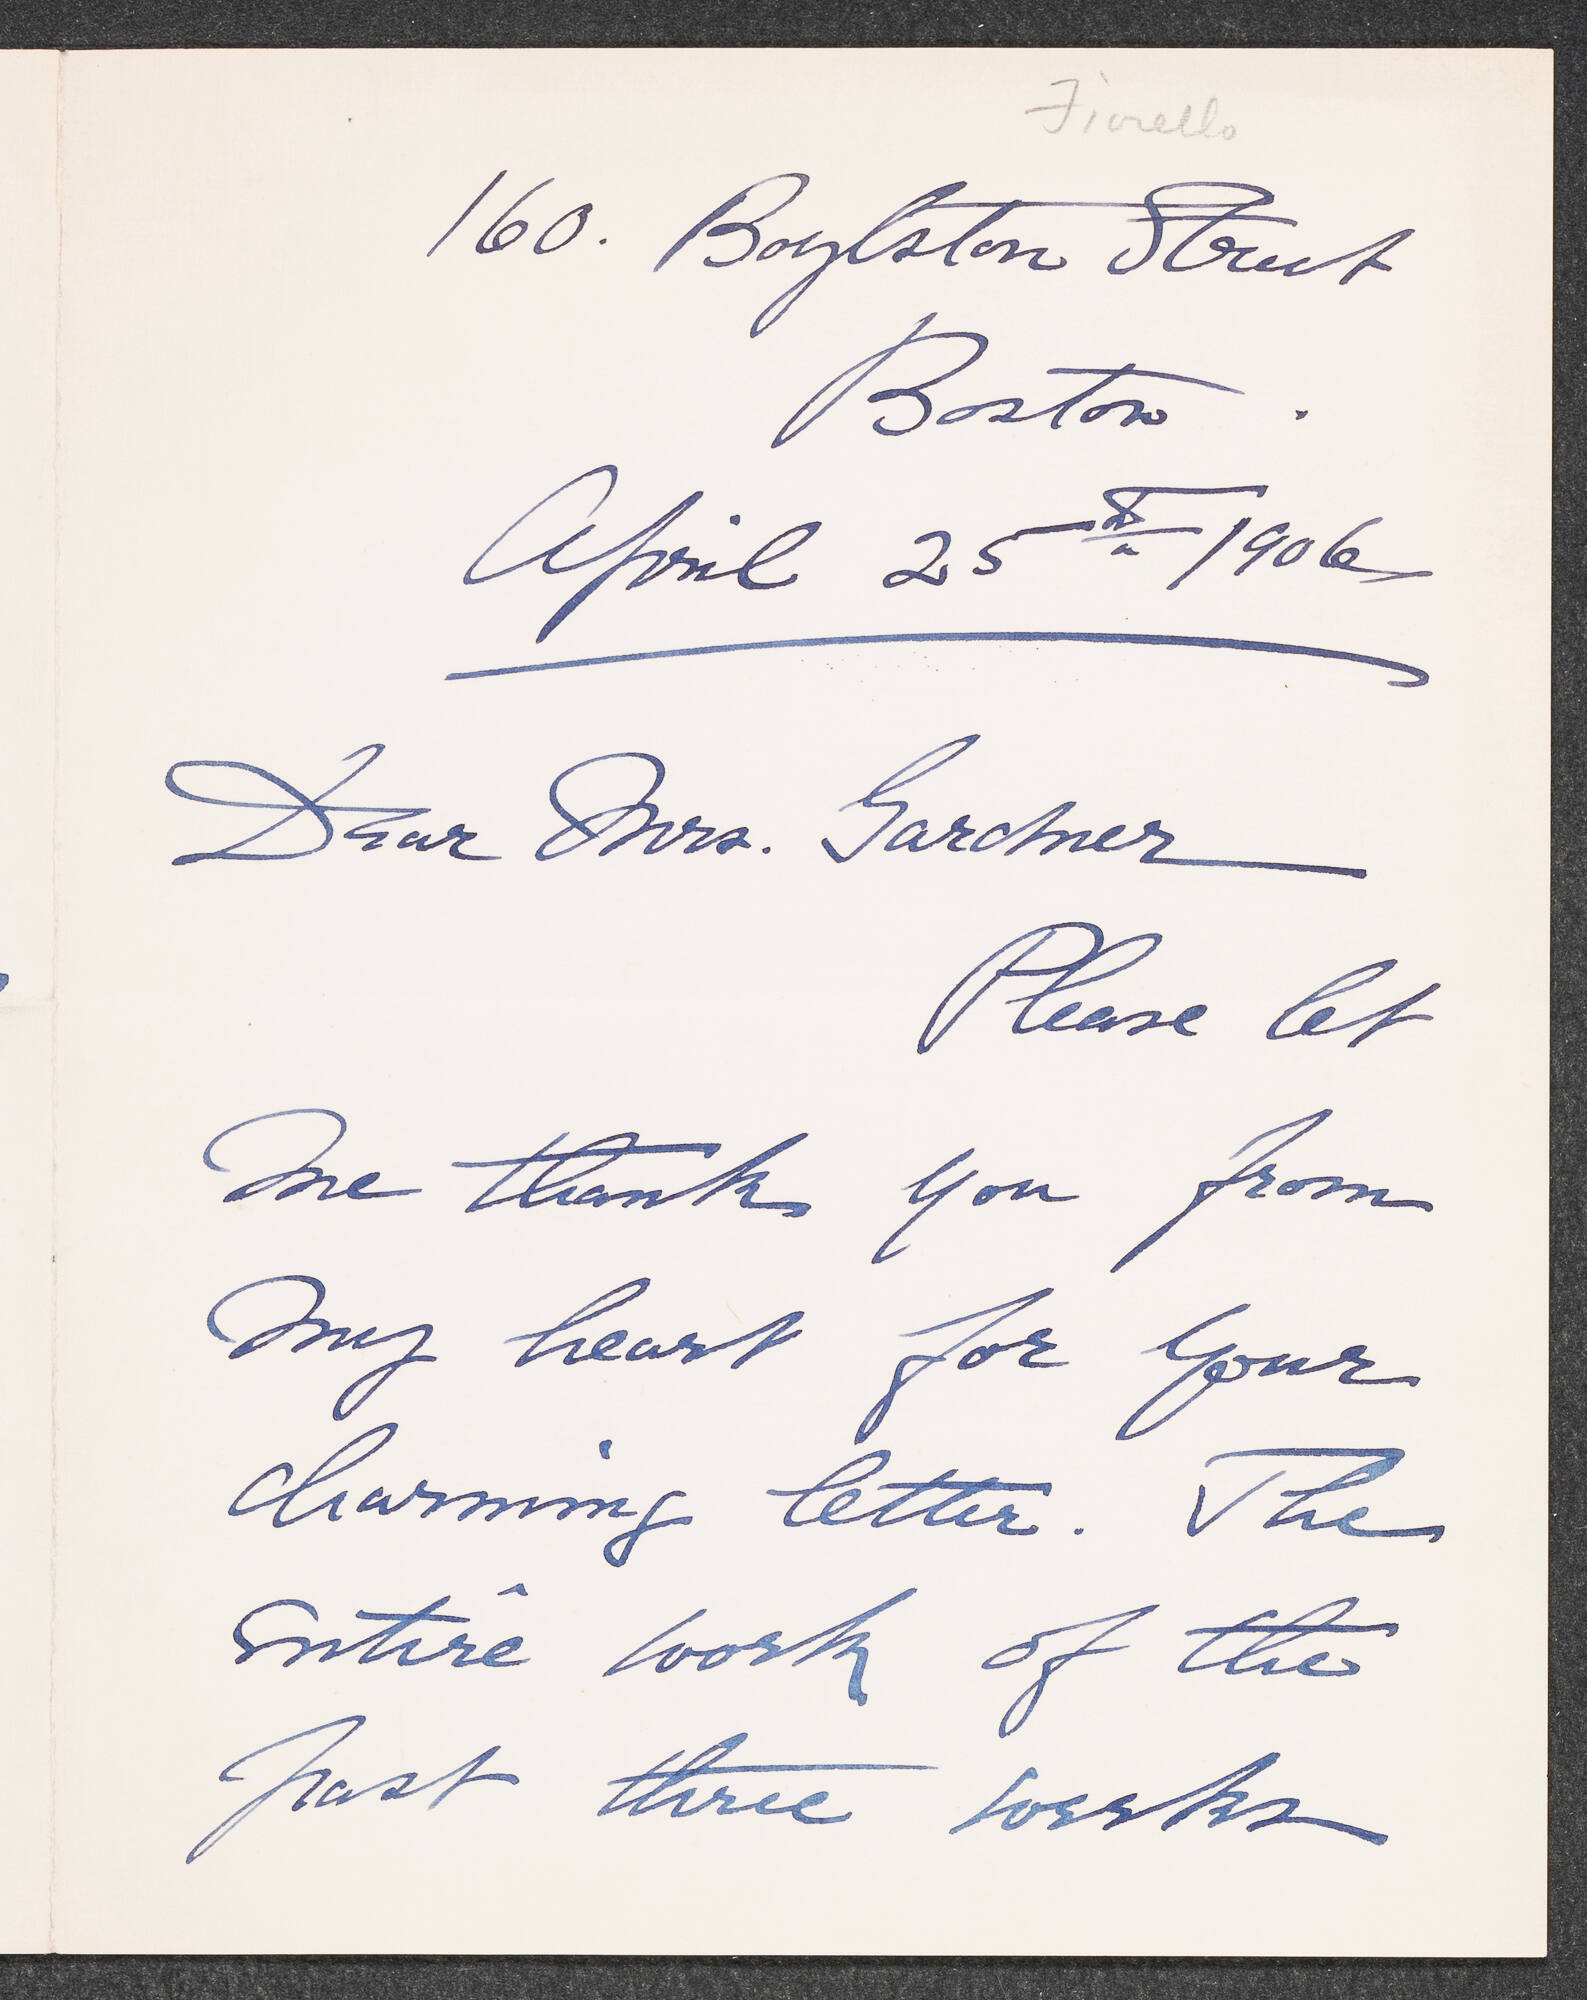 Fiorello
160. Boylston Street
Boston.
April 25th 1906
Dear Mrs. Gardner
Please let
me thank you from
my heart for your
charming letter. The
entire work of the
past three weeks